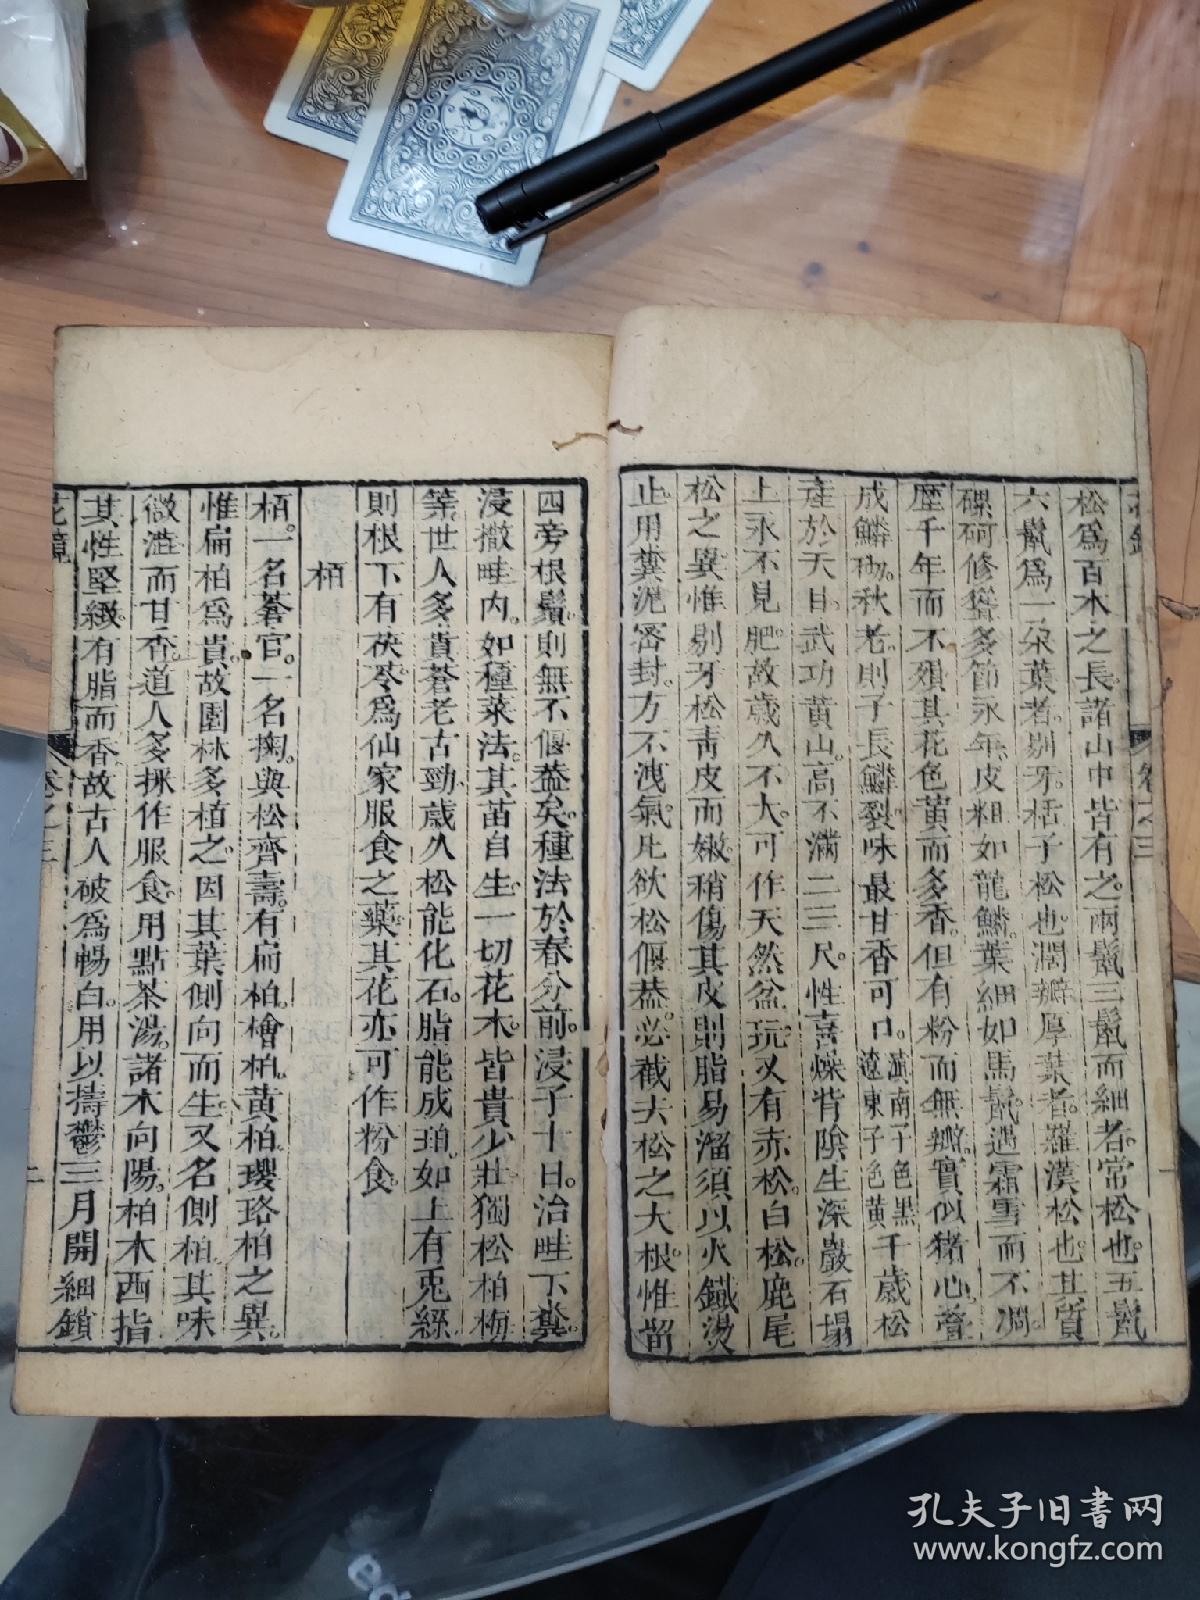 松爲百木之長。諸山中皆有之。兩鬣三鬣而細者。常松也。五鬣
六鬣爲一朶葉者。剔牙栝子松也。濶瓣厚葉者。羅漢松也。其質
磥砢修聳多節。永年皮粗如龍鱗。葉細如馬鬣。遇霜雪而不凋。
歷千年而不殞。其花色黃而多香。但有粉而無瓣。實似猪心。疊
成鱗砌。秋老。則子長鱗裂。味最甘香可口。滇南子色黑遼東子色黃千歲松
產於天目。武功黃山。高不滿二三尺。性喜燥背陰。生深巖石塌
上。永不見肥。故歲久不大。可作天然盆玩。又有赤松。白松。鹿尾
松之異。惟剔牙松青皮而嫩。稍傷其皮。則脂易溜。須以火鐵燙
止。用糞泥密封。方不洩氣。凡欲松偃葢。必截去松之大根。惟留
四旁根鬚。則無不偃葢矣。種法於春分前。浸子十日。治畦下糞。
浸撒畦內。如種菜法。其苗自生。一切花木。皆貴少壯。獨松柏梅
等。世人多貴蒼老古勁。歲久松能化石。脂能成珀。如上有兎絲
則根下有茯苓。爲仙家服食之藥。其花亦可作粉食。
栢
栢。一名蒼官。一名掬。與松齊壽。有扁栢。檜栢。黃柏。瓔珞柏之異。
惟扁柏爲貴。故園林多植之。因其葉側向而生。又名側柏。其味
微澁而甘香。道人多採作服食。用點茶湯。諸木向陽。柏木西指
其性堅緻有脂而香。故古人破爲暢臼。用以擣鬱。三月開細鎖
卷之三
孔夫子旧书网
www.kongfz.com